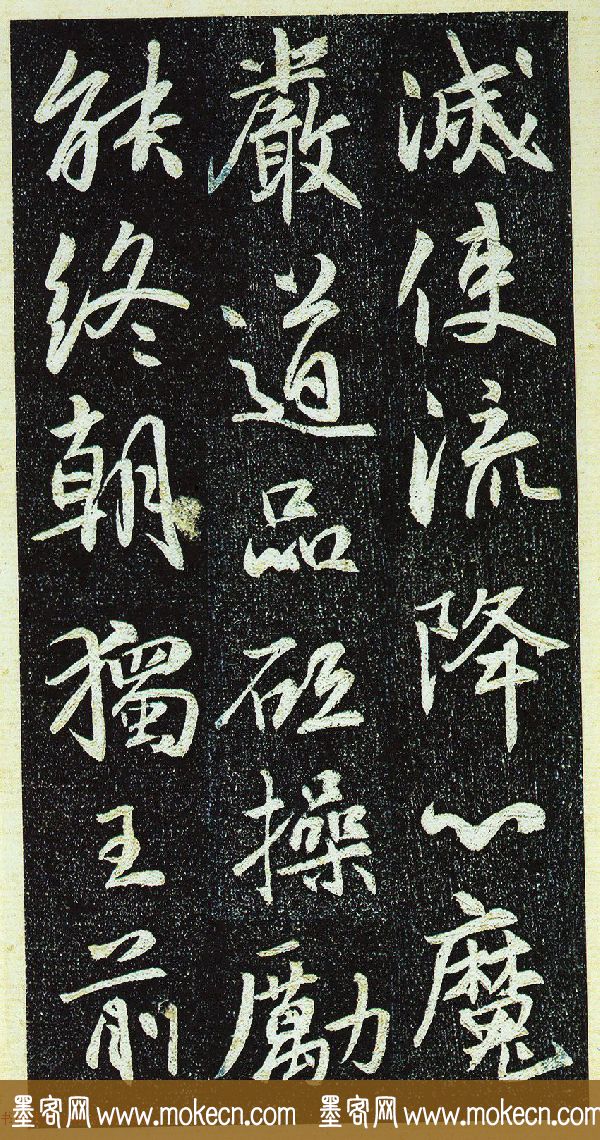 滅使流降心魔
嚴道品砥操勵
能終朝獨王前
墨客网 www.mokecn.com 墨客网 www.mokecn.com